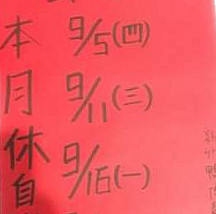 本月休自
9/5(四)
9/11(三)
9/16(一)